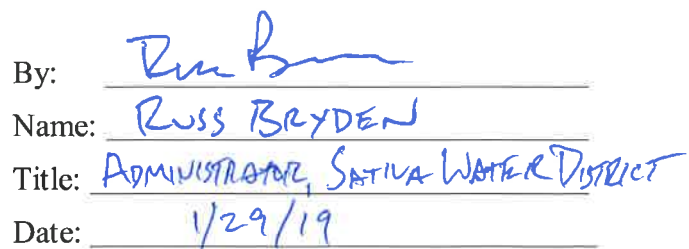 By: Russ B
Name: RUSS BRYDEN
Title: ADMINISTRATOR, SATIVA WATER DISTRICT
Date: 1/29/19